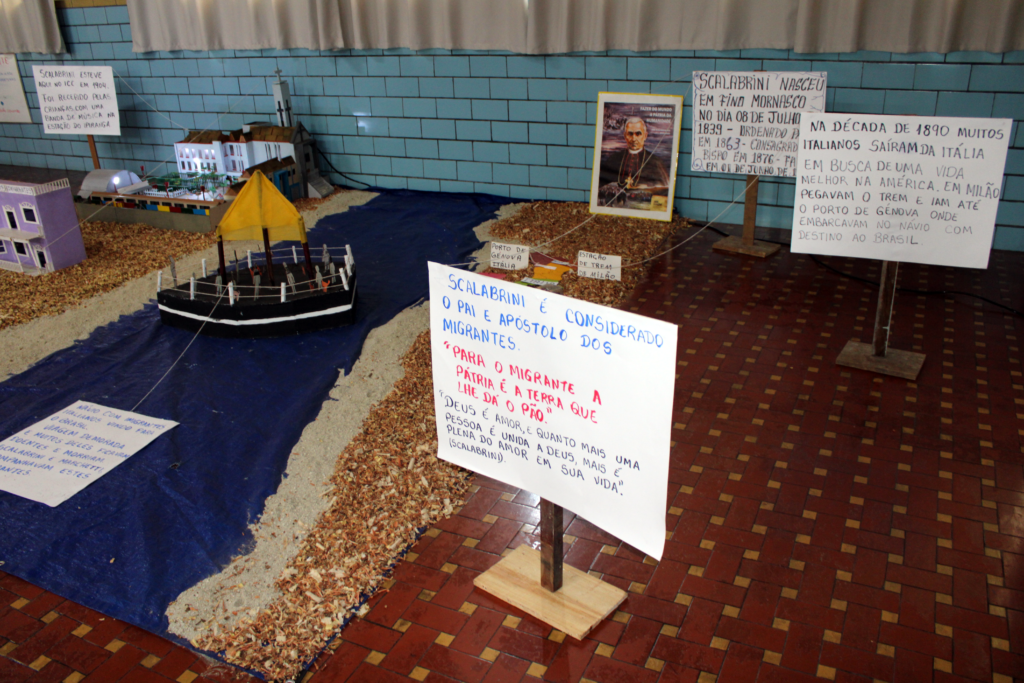 SCALABRINI ESTEVE
AQUI NO ICC EM 1904.
FOI RECEBIDO PELAS
CRIANÇAS COM UMA
BANDA DE MÚSICA NA
ESTAÇÃO DO IPIRANGA
SCALABRINI NASCEU
EM FINO MORNASCO
NO DIA 08 DE JULHO
1839 - ORDENADO
EM 1863 - CONSAGRADO
BISPO EM 1876 -
EM 01 DE JUNHO DE
NA DÉCADA DE 1890 MUITOS
ITALIANOS SAÍRAM DA ITÁLIA
EM BUSCA DE UMA VIDA
MELHOR NA AMÉRICA. EM MILÃO
PEGAVAM O TREM E IAM ATÉ
O PORTO DE GÊNOVA ONDE
EMBARCAVAM NO NAVIO COM
DESTINO AO BRASIL
PORTO DE
GÊNOVA
ITÁLIA
ESTAÇÃO
DE TREM
DE MILÃO
SCALABRINI É CONSIDERADO
O PAI E APÓSTOLO DOS
MIGRANTES.
"PARA O MIGRANTE A
PÁTRIA É A TERRA QUE
LHE DÁ O PÃO."
"DEUS É AMOR, E QUANTO MAIS UMA
PESSOA É UNIDA A DEUS, MAIS É
PLENA DO AMOR EM SUA VIDA".
(SCALABRINI).
NAVIO COM MIGRANTES
ITALIANOS VINDO PARA
O BRASIL
VIAGEM DEMORADA
MUITOS DELES FICAVAM
DOENTES E MORRIAM
SCALABRINI E MARCHETTI